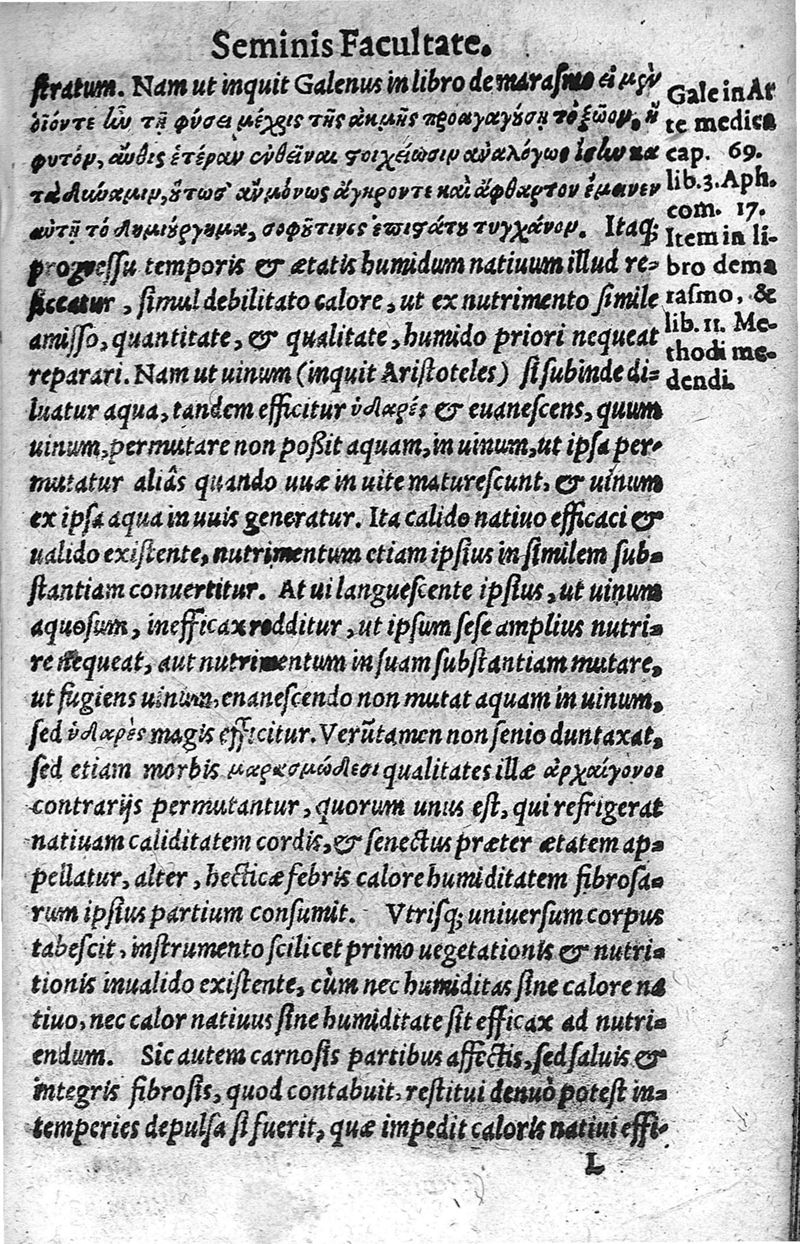 Seminis Facultate.
ſtratum. Nam ut inquit Galenus in libro de maraſmo εἰ μὲν
τῇ φύσει μέχρις τῆς ἀκμῆς προαγαγούσῃ τὸ ζῶον, ἢ
φυτόν, αὖθις ἑτέραν ἐνθεῖναι στοιχείωσιν ἀνάλογον
ἀγήρων τε καὶ ἄφθαρτον ἔμενεν
αὐτῇ τὸ δημιούργημα, σοφοῦ τινος ἐπιστάτου τυγχάνον. Itaq;
progreſſu temporis & ætatis humidum natiuum illud re-
ſiccatur, ſimul debilitato calore, ut ex nutrimento ſimile
amiſſo, quantitate, & qualitate, humido priori nequeat
reparari. Nam ut uinum (inquit Ariſtoteles) ſi ſubinde di-
luatur aqua, tandem efficitur ὑδαρές & euaneſcens, quum
uinum, permutare non poßit aquam, in uinum, ut ipſa per-
mutatur aliâs quando uuæ in uite matureſcunt, & uinum
ex ipſa aqua in uuis generatur. Ita calido natiuo efficaci &
ualido exiſtente, nutrimentum etiam ipſius in ſimilem ſub-
ſtantiam conuertitur. At ui langueſcente ipſius, ut uinum
aquoſum, inefficax redditur, ut ipſum ſeſe amplius nutri-
re nequeat, aut nutrimentum in ſuam ſubſtantiam mutare,
ut fugiens uinum, enaneſcendo non mutat aquam in uinum,
ſed ὑδαρὲς magis efficitur. Verũtamen non ſenio duntaxat,
ſed etiam morbis μαρασμώδεσι qualitates illæ ἀρχαίγονοι
contrarijs permutantur, quorum unus eſt, qui refrigerat
natiuam caliditatem cordis, & ſenectus præter ætatem ap-
pellatur, alter, hecticæ febris calore humiditatem fibroſa-
rum ipſius partium conſumit. Vtriſq; uniuerſum corpus
tabeſcit, inſtrumento ſcilicet primo uegetationis & nutri-
tionis inualido exiſtente, cùm nec humiditas ſine calore na
tiuo, nec calor natiuus ſine humiditate ſit efficax ad nutri-
endum. Sic autem carnoſis partibus affectis, ſed ſaluis &
integris fibroſis, quod contabuit, reſtitui denuò poteſt in-
temperies depulſa ſi fuerit, quæ impedit caloris natiui effi-
L
Gale in Ar
te medica
cap. 69.
lib. 3. Aph.
com. 17.
Item in li-
bro de ma
raſmo, &
lib. 11. Me-
thodi me-
dendi.